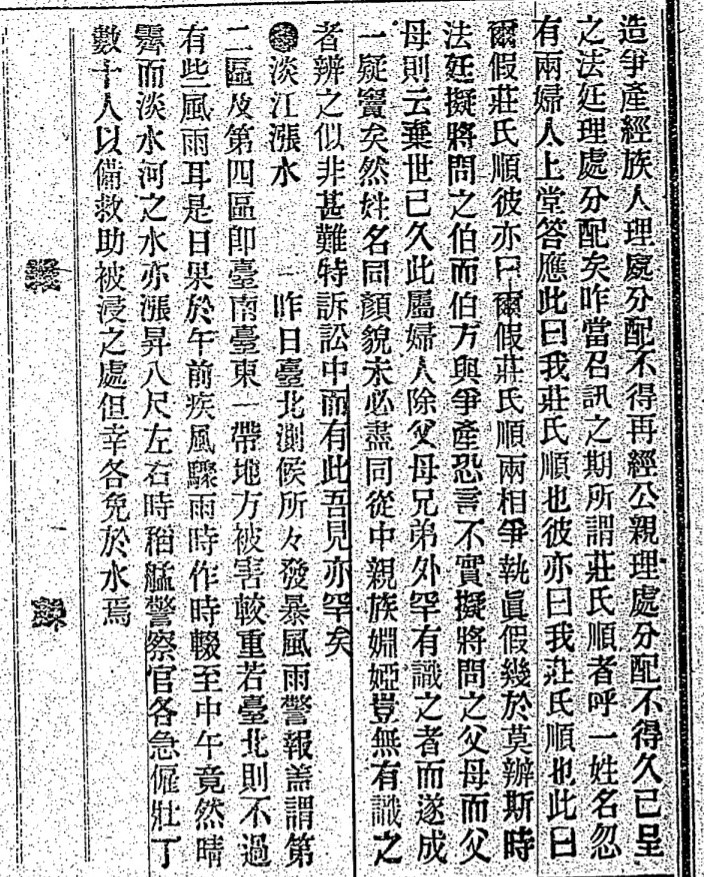 造爭產經族人理處分配不得再經公親理處分配不得久已呈
之法廷理處分配矣咋當召訊之期所謂莊氏順者呼一姓名忽
有兩婦人上堂答應此曰我莊氏順也彼亦曰我莊氏順也此曰
爾假莊氏順彼亦曰爾假莊氏順兩相爭執眞假幾於莫辦斯時
法廷擬將問之伯而伯方與爭產恐言不實擬將問之父母而父
母則云棄世已久此屬婦人除父母兄弟外罕有識之者而遂成
一疑竇矣然姓名同顏貌未必盡同從中親族婣婭豈無有識之
者辨之似非甚難特訴訟中而有此吾見亦罕矣
淡江漲水 昨日臺北測候所々發暴風雨警報盖謂第
二區及第四區卽臺南臺東一帶地方被害較重若臺北則不過
有些風雨耳是日果於午前疾風驟雨時作時輟至中午竟然晴
霽而淡水河之水亦漲昇八尺左右時稻艋警察官各急僱壯丁
數十人以備救助被浸之處但幸各免於水焉